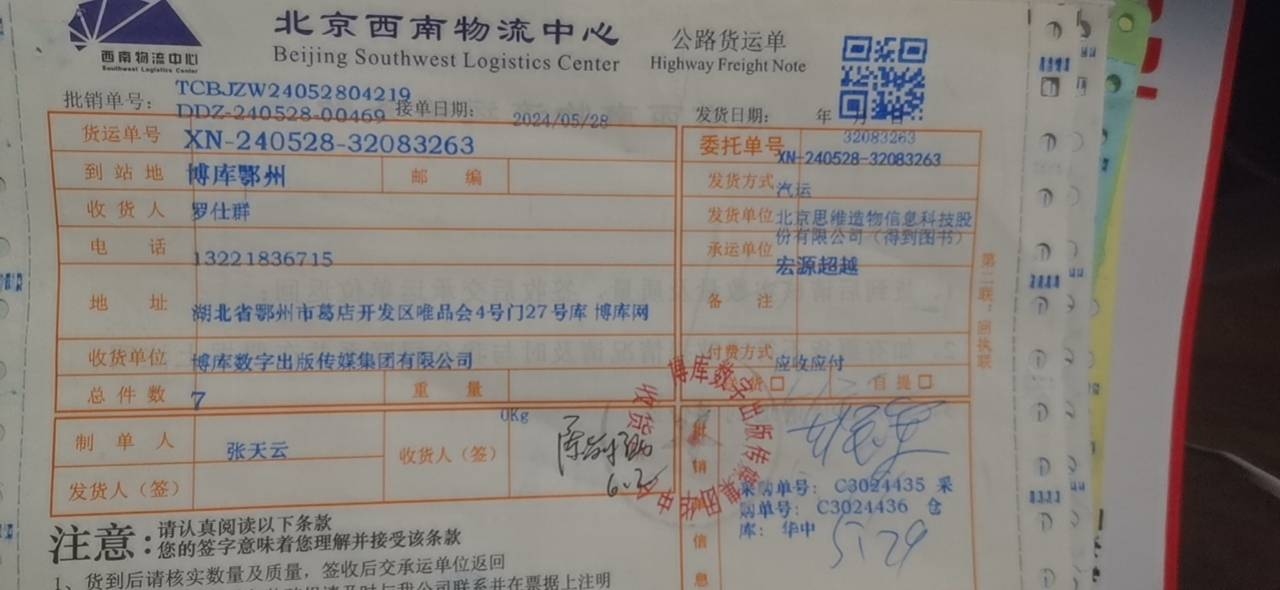 西南物流中心
Southwest Logistics Center
北京西南物流中心
Beijing Southwest Logistics Center
公路货运单
Highway Freight Note
批销单号: TCBJZW24052804219
DDZ-240528-00469 接单日期: 2024/05/28
发货日期: 年 月 日
货运单号 XN-240528-32083263
委托单号 32083263
XN-240528-32083263
到站地 博库鄂州 邮编
发货方式 汽运
收货人 罗仕群
发货单位 北京思维造物信息科技股
份有限公司（得到图书）
电话 13221836715
承运单位 宏源超越
地址 湖北省鄂州市葛店开发区唯品会4号门27号库 博库网
备注
收货单位 博库数字出版传媒集团有限公司
付费方式 应收应付
总件数 7 重量 0Kg
送货 □ 自提 □
制单人 张天云
收货人（签）
6.2
发货人（签）
博库数字出版传媒集团 华中
收货
批销 信息
采购单号: C3024435 采
购单号: C3024436 仓
库: 华中
5.29
第二联：回执联
注意: 请认真阅读以下条款
您的签字意味着您理解并接受该条款
1、货到后请核实数量及质量，签收后交承运单位返回
请及时与我公司联系并在票据上注明